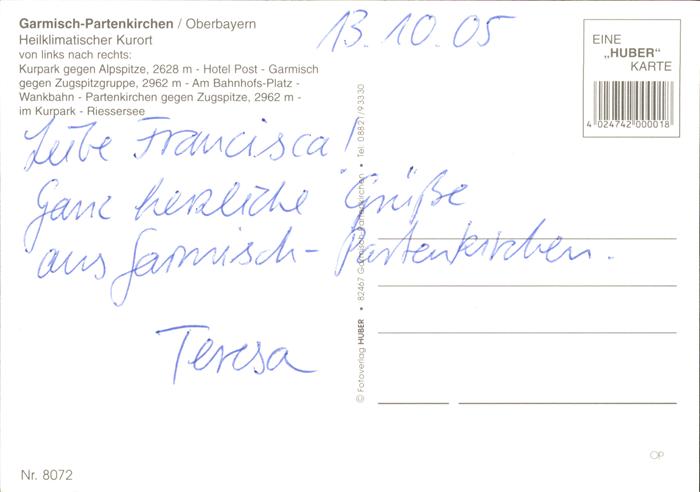 Garmisch-Partenkirchen / Oberbayern
Heilklimatischer Kurort
von links nach rechts:
Kurpark gegen Alpspitze, 2628 m - Hotel Post - Garmisch
gegen Zugspitzgruppe, 2962 m - Am Bahnhofs-Platz -
Wankbahn - Partenkirchen gegen Zugspitze, 2962 m -
im Kurpark - Riessersee
13.10.05
EINE
„HUBER"
KARTE
4 024742 000018
Liebe Francisca!
Ganz herzliche Grüße
aus Garmisch-Partenkirchen.
Teresa
© Fotoverlag HUBER • 82467 Garmisch-Partenkirchen • Tel. 08821/93330
OP
Nr. 8072